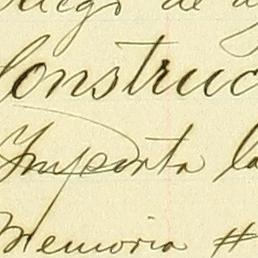 luego de
Construc
Importa la
Memoria #